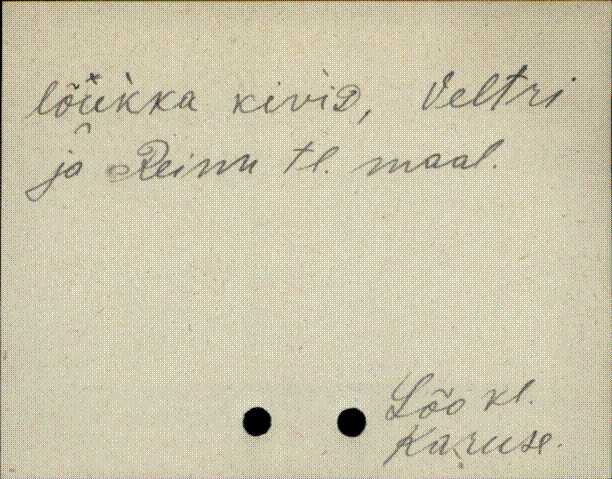 lõükka kiviD, Veltri
ja Reinu tl. maal.
Lõo kl.
Karuse.